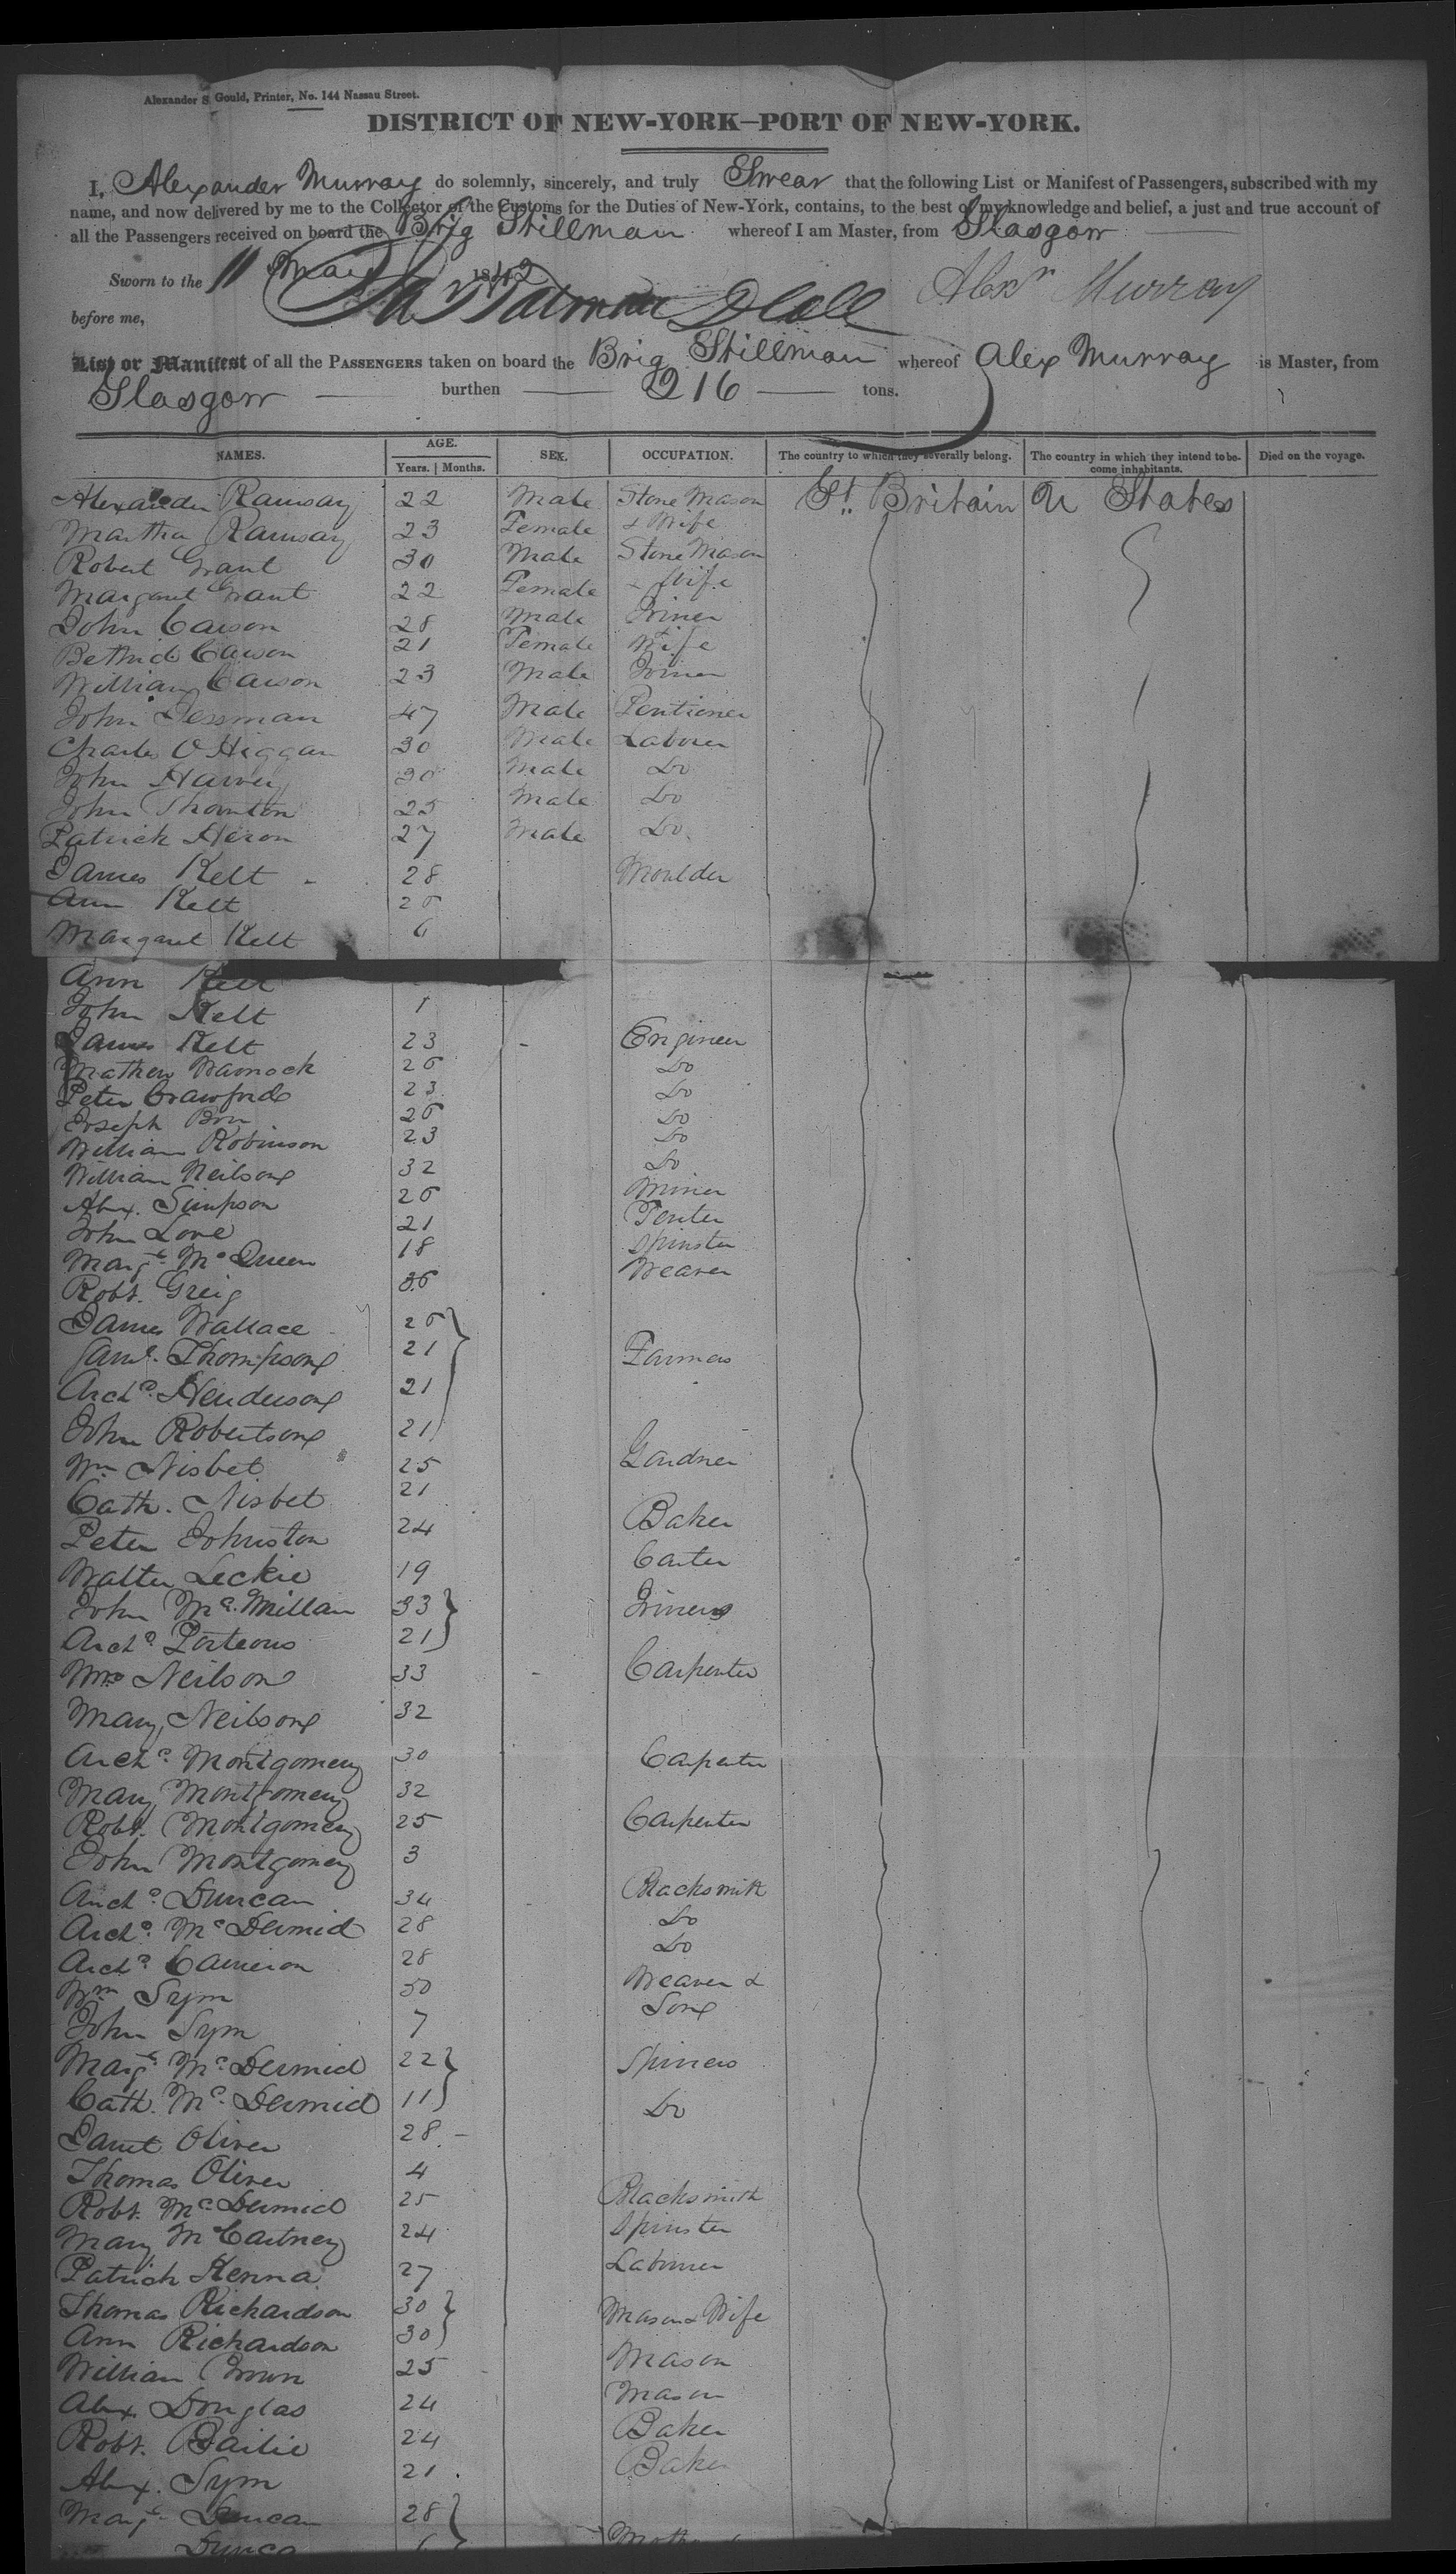 Alexander S. Gould, Printer, No. 144 Nassau Street.
DISTRICT OF NEW-YORK—PORT OF NEW-YORK.
I, Alexander Murray do solemnly, sincerely, and truly Swear that the following List or Manifest of Passengers, subscribed with my
name, and now delivered by me to the Collector of the Customs for the Duties of New-York, contains, to the best of my knowledge and belief, a just and true account of
all the Passengers received on board the Brig Stillman whereof I am Master, from Glasgow
Sworn to the 11 May 1842 Alexr Murray
before me,
List or Manifest of all the PASSENGERS taken on board the Brig Stillman whereof Alex Murray is Master, from
Glasgow burthen 216 tons.
NAMES. AGE. Years. | Months. SEX. OCCUPATION. The country to which they severally belong. The country in which they intend to become inhabitants. Died on the voyage.
Alexander Ramsay 22 Male Stone Mason Gt. Britain U States
Martha Ramsay 23 Female & Wife
Robert Grant 30 Male Stone Mason
Margaret Grant 22 Female & Wife
John Carson 28 Male Joiner
Carson 21 Female Wife
William Carson 23 Male Joiner
John 47 Male Pentioner
Charles O Higgan 30 Male Laborer
John Harvey 30 Male Do
John Thornton 25 Male Do
Patrick Heron 27 Male Do
James Kelt 28 Moulder
Ann Kelt
Margaret Kelt 6
Ann Kelt
John Kelt 1
James Kelt 23 Engineer
Mathew Warnock 26 Do
Peter Crawford 23 Do
Joseph 26 Do
William Robinson 23 Do
William Neilson 32 Do
Alex. Simpson 26 Miner
John Love 21 Tenter
Margt McQueen 18 Spinster
Robt. Greig 36 Weaver
James Wallace 26
Saml. Thompson 21 Farmers
Archd. Henderson 21
John Robertson 21
Wm Nisbet 25 Gardner
Cath. Nisbet 21
Peter Johnston 24 Baker
Walter Leckie 19 Carter
John Mc.Millan 33 Joiners
Archd. Porteous 21
Wm Neilson 33 Carpenter
Mary Neilson 32
Archd. Montgomery 30 Carpenter
Mary Montgomery 32
Robt. Montgomery 25 Carpenter
John Montgomery 3
Archd. Duncan 34 Blacksmith
Archd. McDermid 28 Do
Archd. Cameron 28 Do
Wm Sym 50 Weaver &
John Sym 7 Son
Margt. McDermid 22 Spiners
Cath. Mc.Dermid 11 Do
Janet Oliver 28
Thomas Oliver 4
Robt. McDermid 25 Blacksmith
Mary McCartney 24 Spinster
Patrick Kenna 27 Labourer
Thomas Richardson 30 Mason & Wife
Ann Richardson 30
William Brown 25 Mason
Alex. Douglas 24 Mason
Robt. Bailie 24 Baker
Alex. Sym 21 Baker
Margt. Duncan 28